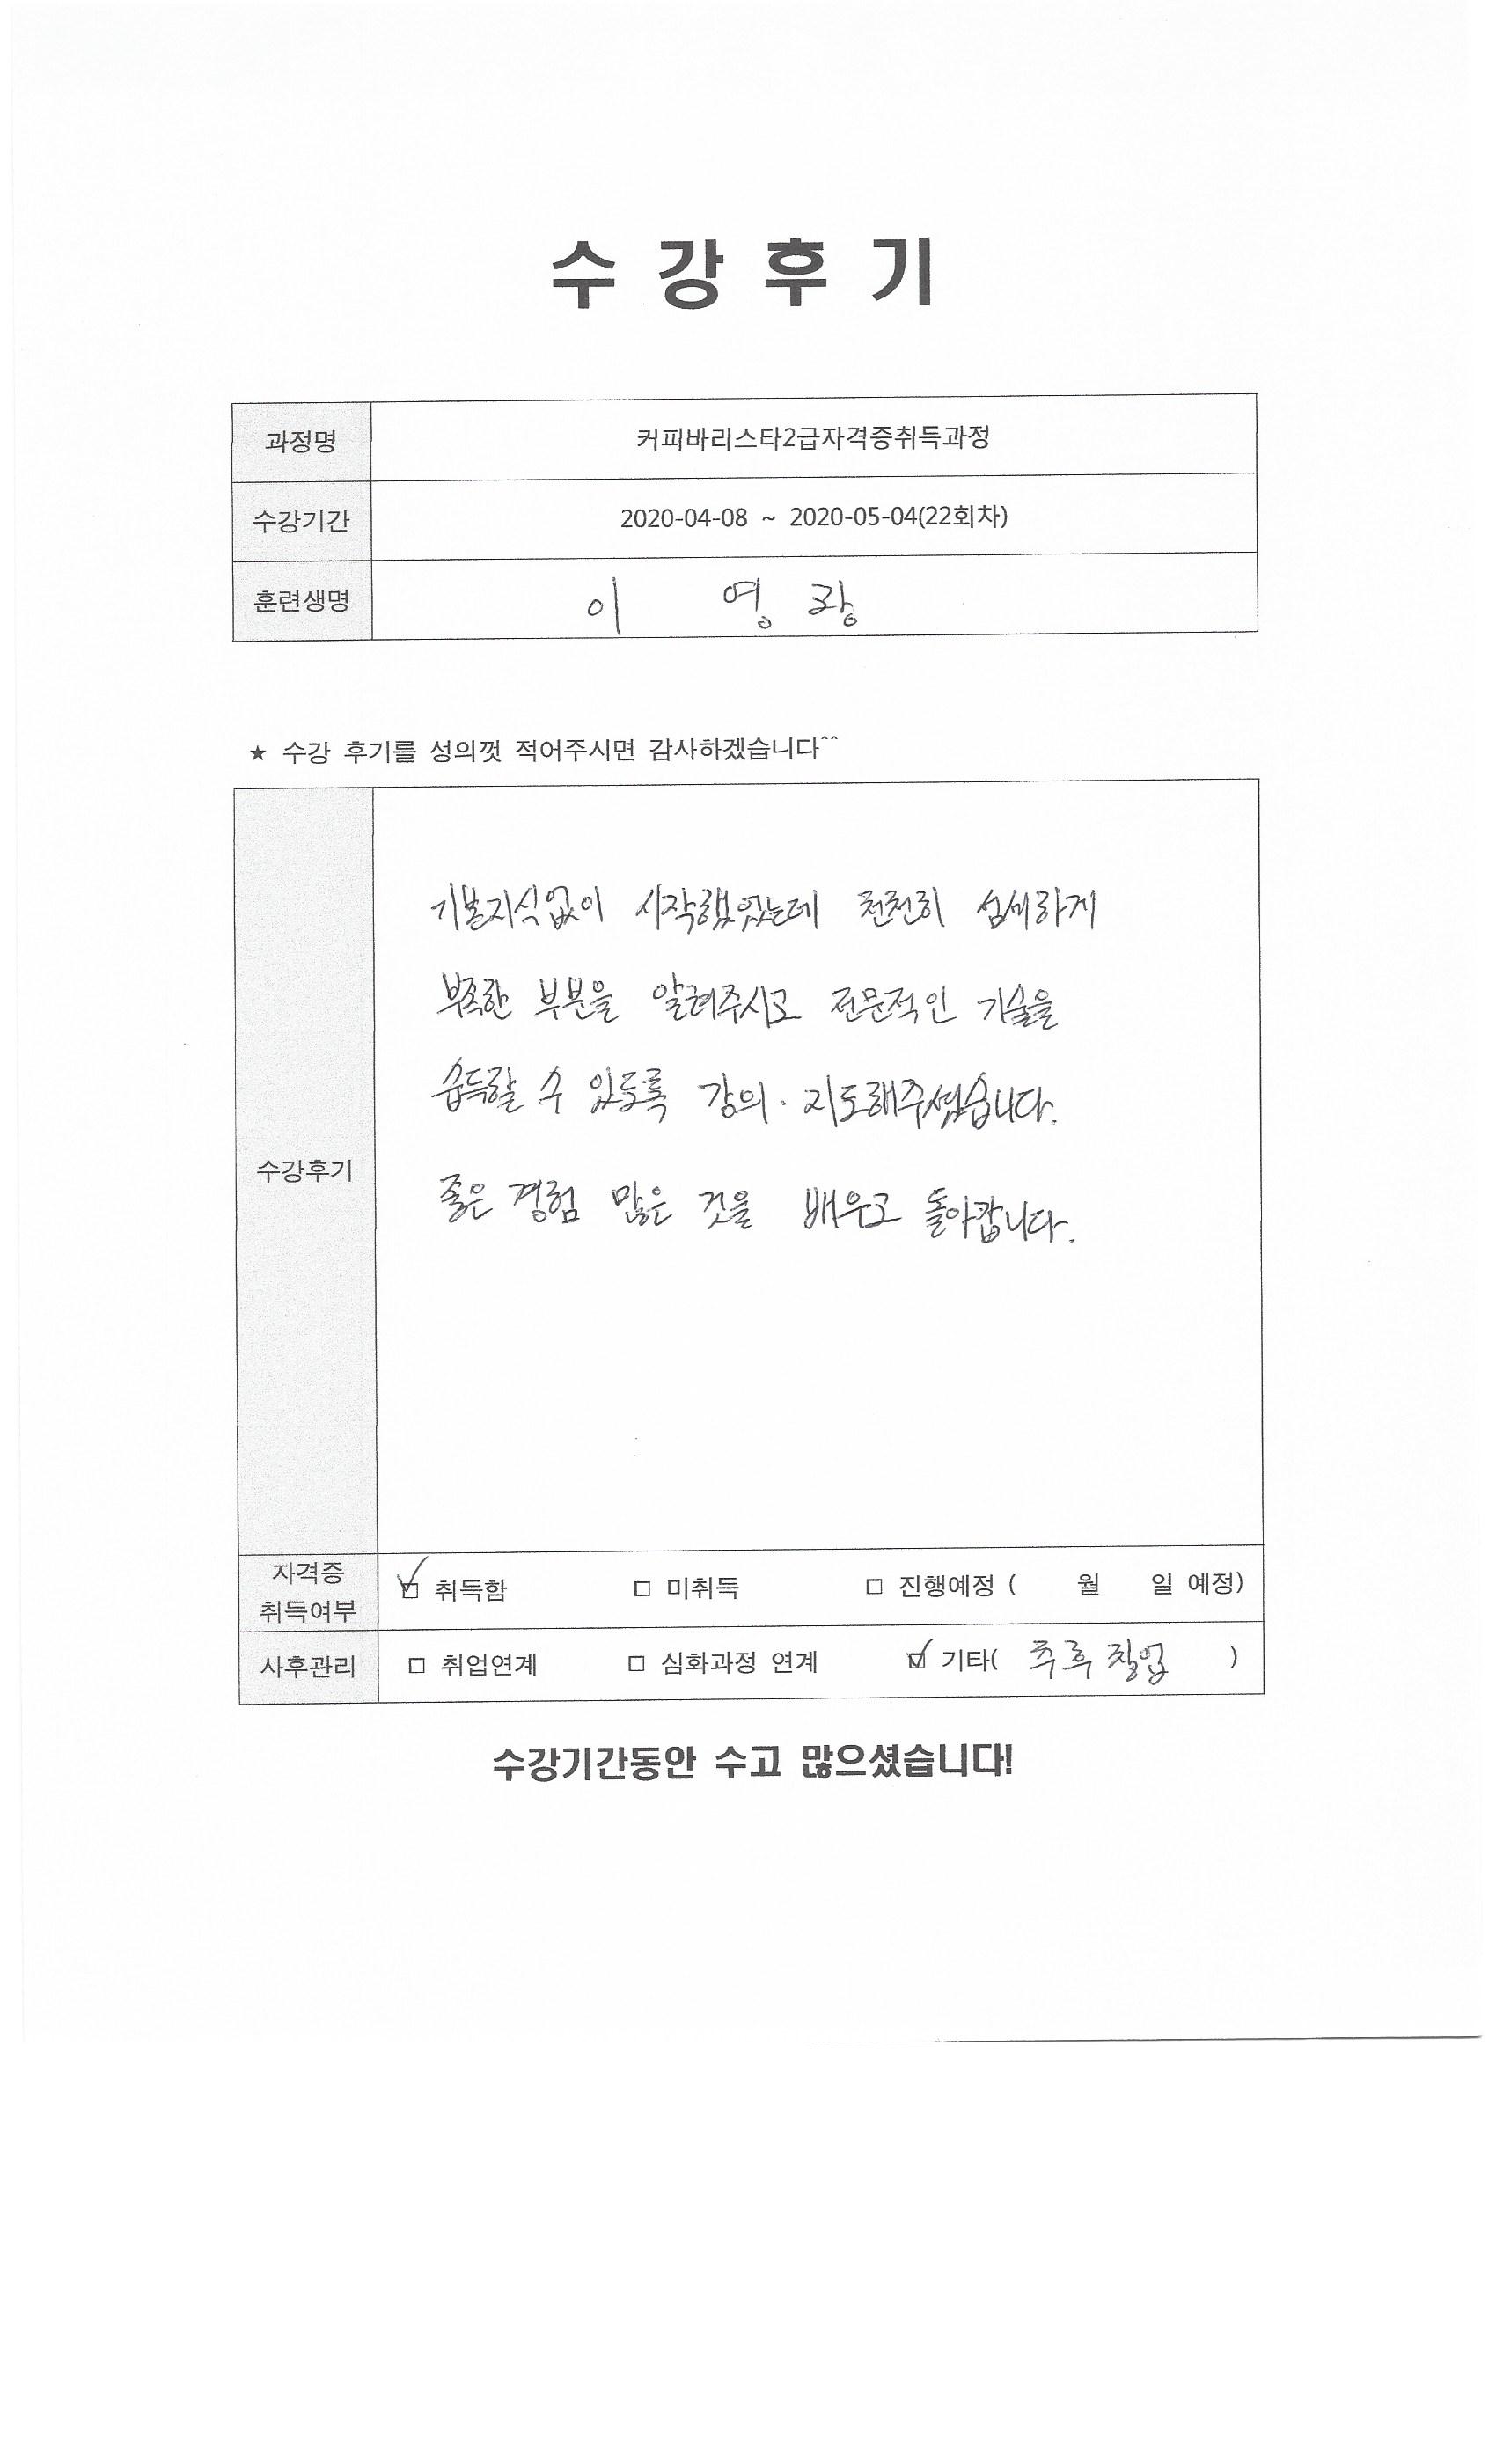 수 강 후 기
과정명 커피바리스타2급자격증취득과정
수강기간 2020-04-08 ~ 2020-05-04(22회차)
훈련생명 이 영 광
★ 수강 후기를 성의껏 적어주시면 감사하겠습니다^^
기본지식없이 시작했었는데 천천히 섬세하게
부족한 부분을 알려주시고 전문적인 기술을
습득할 수 있도록 강의·지도해주셨습니다.
수강후기
좋은 경험 많은 것을 배우고 돌아갑니다.
자격증
취득여부
☑ 취득함 □ 미취득 □ 진행예정 ( 월 일 예정)
사후관리 □ 취업연계 □ 심화과정 연계 ☑ 기타( 추후 창업 )
수강기간동안 수고 많으셨습니다!